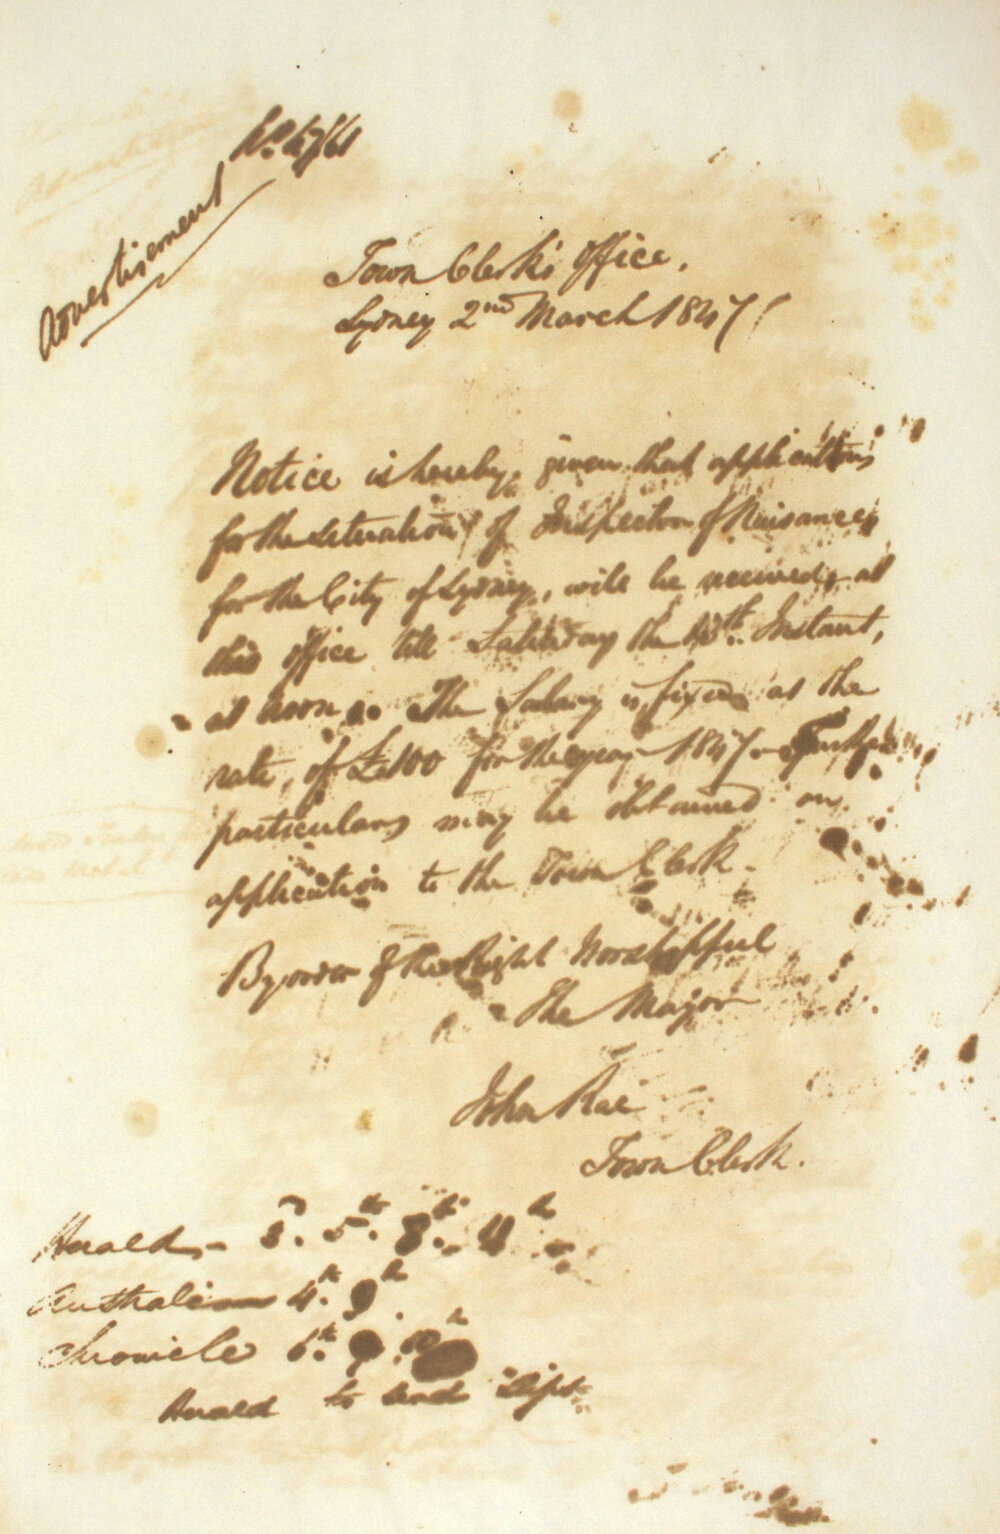 No. 47/61
Advertisement
Town Clerk's Office.
Sydney 2nd March 1847
Notice is hereby given that applications
for the situation of Inspector of Nuisances
for the City of Sydney, will be received at
this office till Saturday the Instant,
at noon. The Salary is fixed at the
rate, of £100 for the year 1847. Further
particulars may be obtained on
application to the Town Clerk.
By order of the Right Worshipful
The Mayor
John Rae
Town Clerk.
Herald - 5th. 8th.
Australian 4th. 9th.
Chronicle 6th. 10th
Herald to send slips